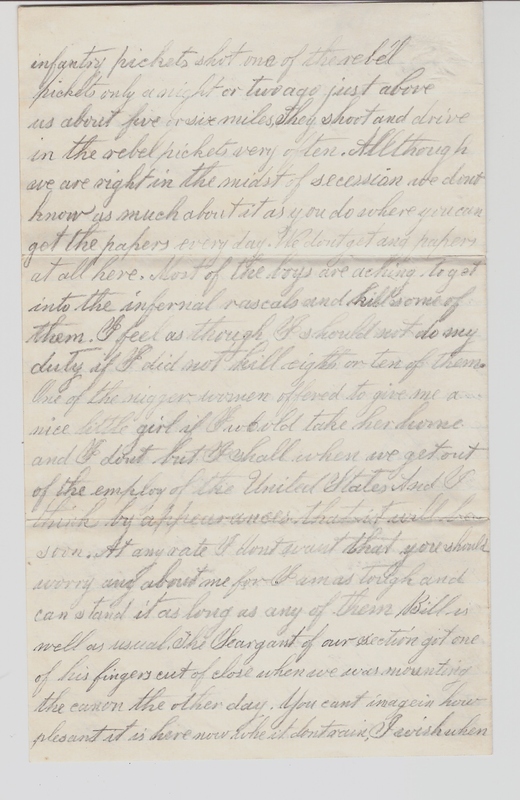 infantry pickets shot one of the rebel
pickets only a night or two ago just above
us about five or six miles, they shoot and drive
in the rebel pickets very often. Allthough
we are right in the midst of secessian we dont
know as much about it as you do where you can
get the papers every day. We dont get any papers
at all here. Most of the boys are aching to get
into the infernal rascals and kill some of
them. I feel as though I should not do my
duty if I did not kill eight or ten of them.
One of the nigger women offered to give me a
nice little girl if I would take her home
and I dont but I shall when we get out
of the employ of the United States And I
think by appearances that it will be
soon. At any rate I dont want that you should
worry any about me for I am as tough and
can stand it as long as any of them Bill is
well as usual. The Seargant of our section got one
of his fingers cut of close when we was mounting
the canon the other day. You cant imagein how
plesant it is here now it dont rain, I wish when